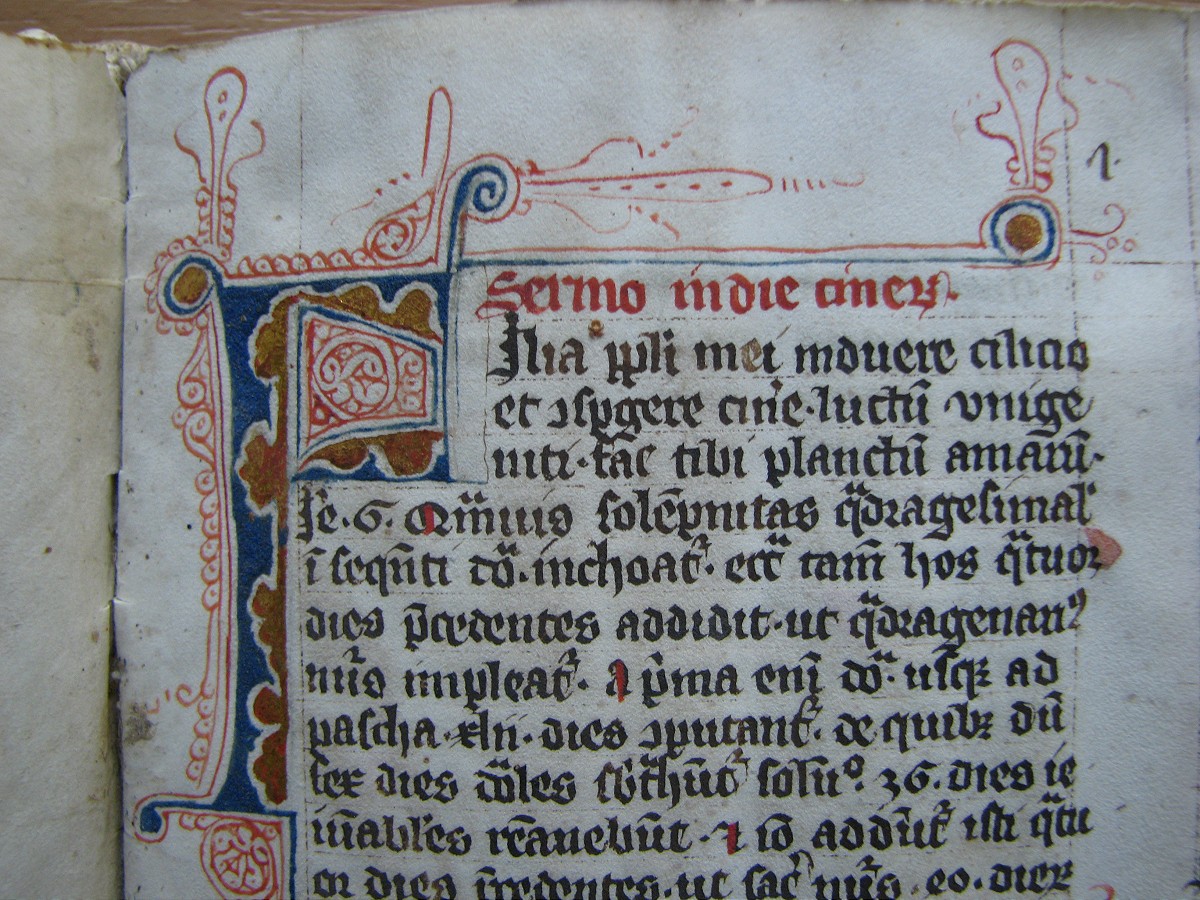 1.
Sermo in die cinerꝝ.
Filia ppli mei induere cilicio
et ꝯspgere cine. luctū vnige
niti. fac tibi planctū amarū.
Je. 6. Qͣmuis solēpnitas qͣdragesimal
ī seqn̄ti do. inchoat᷑. eccͣ tam̄ hos qͣtuor
dies p̄cedentes addidit. ut qͣdragenariꝰ
nu᷑s impleat᷑. A pͥma enī do. usqꝫ ad
pascha xlii. dies ꝯputant᷑. de quibꝫ dū
sex dies do᷑les sb᷑thūt᷑ solūo. 36. dies ie
iūabl᷑es re᷑anebūt. ⁊ iō addūt᷑ isti qͣtu
or dies p̄cedentes. ut sac᷑ nu᷑s. 40. dierꝝ